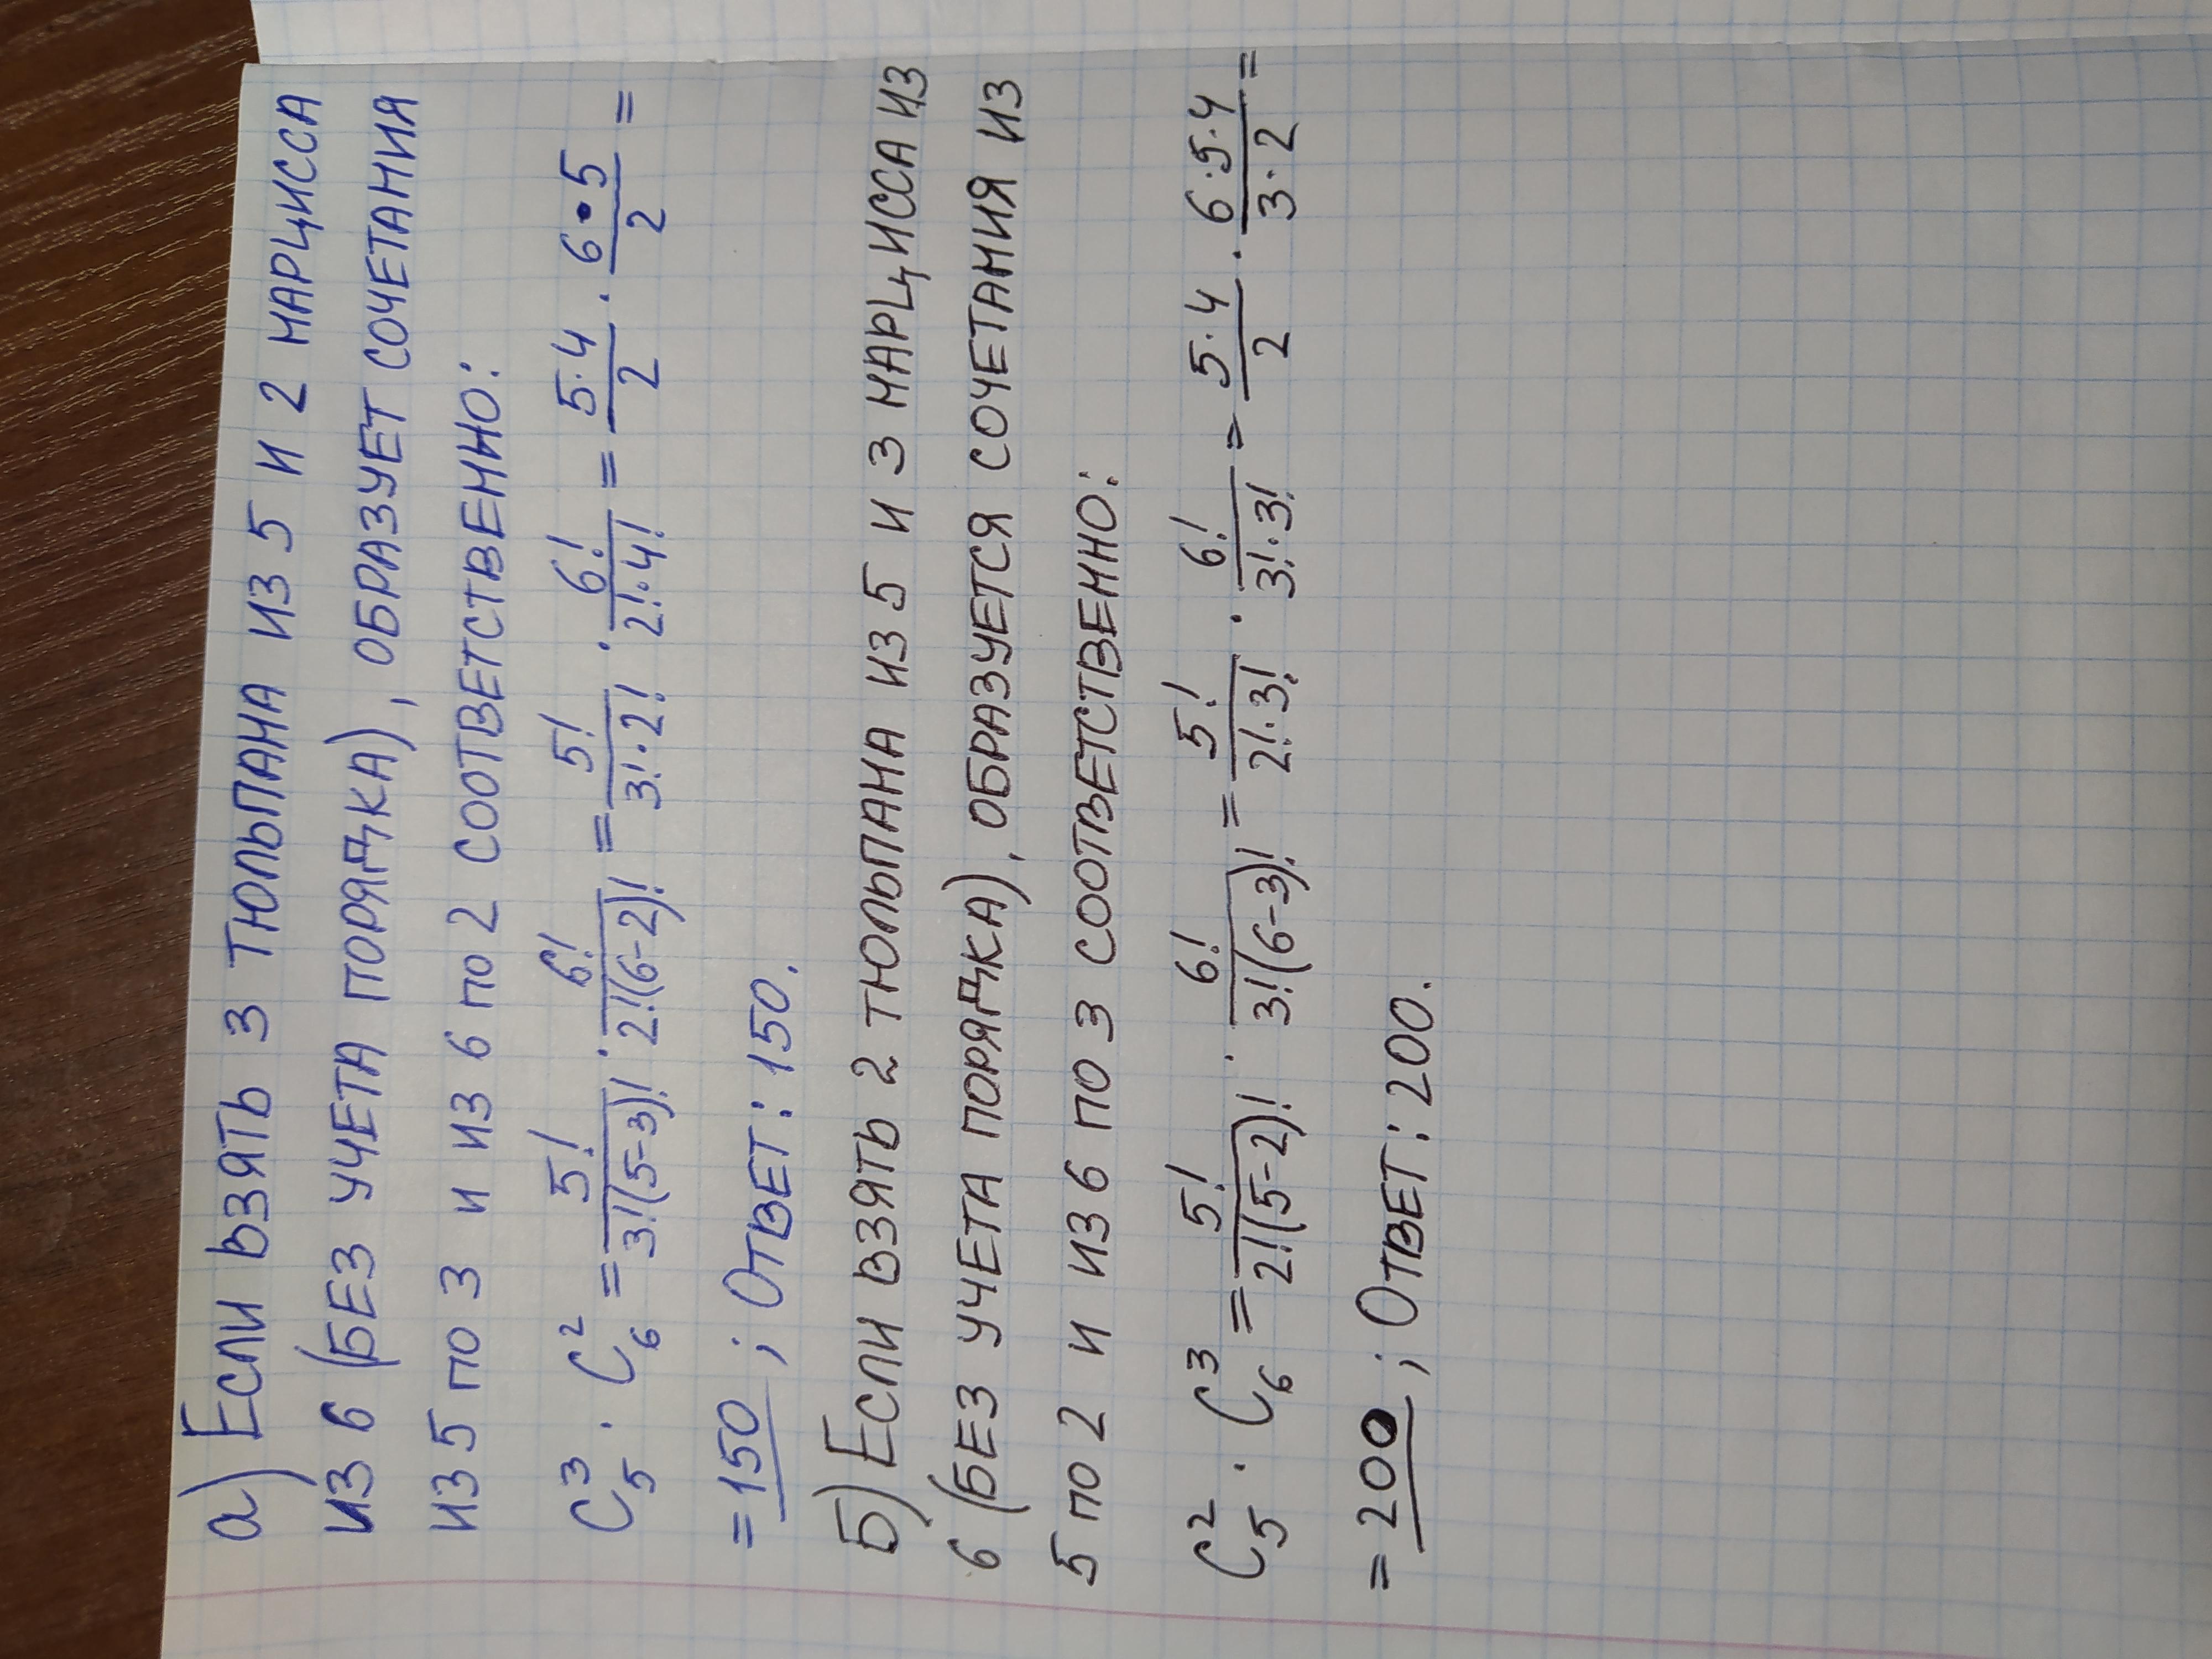 а) Если взять 3 тюльпана из 5 и 2 нарцисса
из 6 (без учета порядка), образует сочетания
из 5 по 3 и из 6 по 2 соответственно:
C₅³ · C₆² = 5!/3!(5-3)! · 6!/2!(6-2)! = 5!/3!·2! · 6!/2!·4! = 5·4/2 · 6·5/2 =
= 150 ; Ответ: 150.
Б) Если взять 2 тюльпана из 5 и 3 нарцисса из
6 (без учета порядка), образуется сочетания из
5 по 2 и из 6 по 3 соответственно:
C₅² · C₆³ = 5!/2!(5-2)! · 6!/3!(6-3)! = 5!/2!·3! · 6!/3!·3! = 5·4/2 · 6·5·4/3·2 =
= 200 ; Ответ: 200.